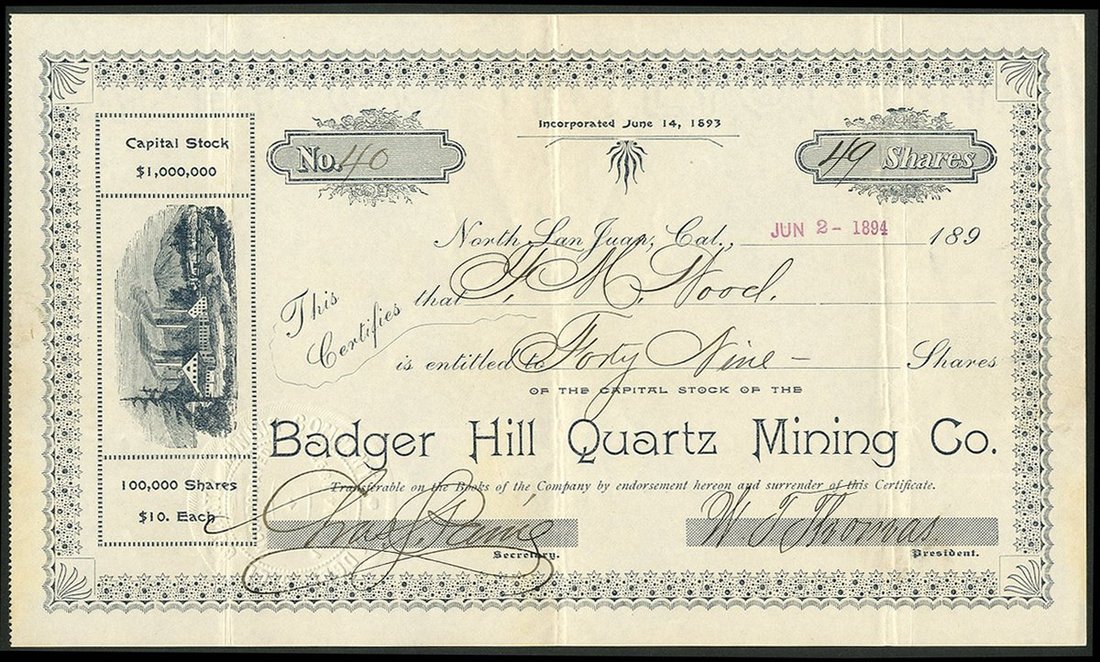 Incorporated June 14, 1893
Capital Stock
$1,000,000
No. 40
49 Shares
North San Juan, Cal., JUN 2 - 1894 189
This Certifies that T. M. Wood.
is entitled to Forty Nine — Shares
OF THE CAPITAL STOCK OF THE
Badger Hill Quartz Mining Co.
Transferable on the Books of the Company by endorsement hereon and surrender of this Certificate.
100,000 Shares
$10. Each
W T Thomas
Secretary.
President.